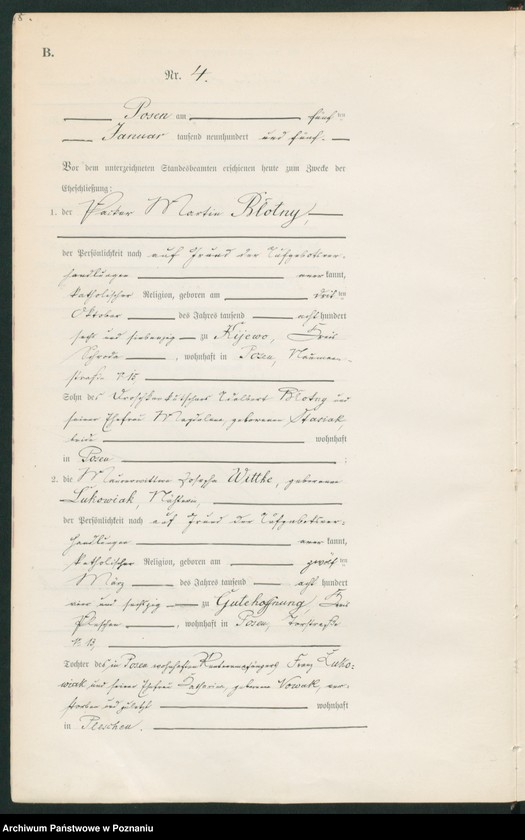 8.
B.
Nr. 4.
Posen am fünf ten
Januar tausend neunhundert und fünf.
Vor dem unterzeichneten Standesbeamten erschienen heute zum Zwecke der
Eheschließung:
1. der Martin Blotny,
der Persönlichkeit nach auf Grund der Aufgebotsver-
handlungen anerkannt,
katholischer Religion, geboren am ten
Oktober des Jahres tausend acht hundert
sechs und siebenzig zu Kijewo, Kreis
Schroda, wohnhaft in Posen, Naumann-
straße
Sohn des Droschkenkutschers Blotny und
seiner Ehefrau Magdalena geborenen Stasiak,
beide wohnhaft
in Posen ;
2. die Josepha Wittke, geborene
Lukowiak, Näherin,
der Persönlichkeit nach auf Grund der Aufgebotsver-
handlungen anerkannt,
katholischer Religion, geboren am zwölf ten
März des Jahres tausend acht hundert
vier und sechzig zu Gutehoffnung, Kreis
Pleschen, wohnhaft in Posen,
13,
Tochter des in Posen verstorbenen Franz Luko-
wiak und seiner Ehefrau Katharina, geborenen Nowak, ver-
storben und zuletzt wohnhaft
in Pleschen.
Archiwum Państwowe w Poznaniu